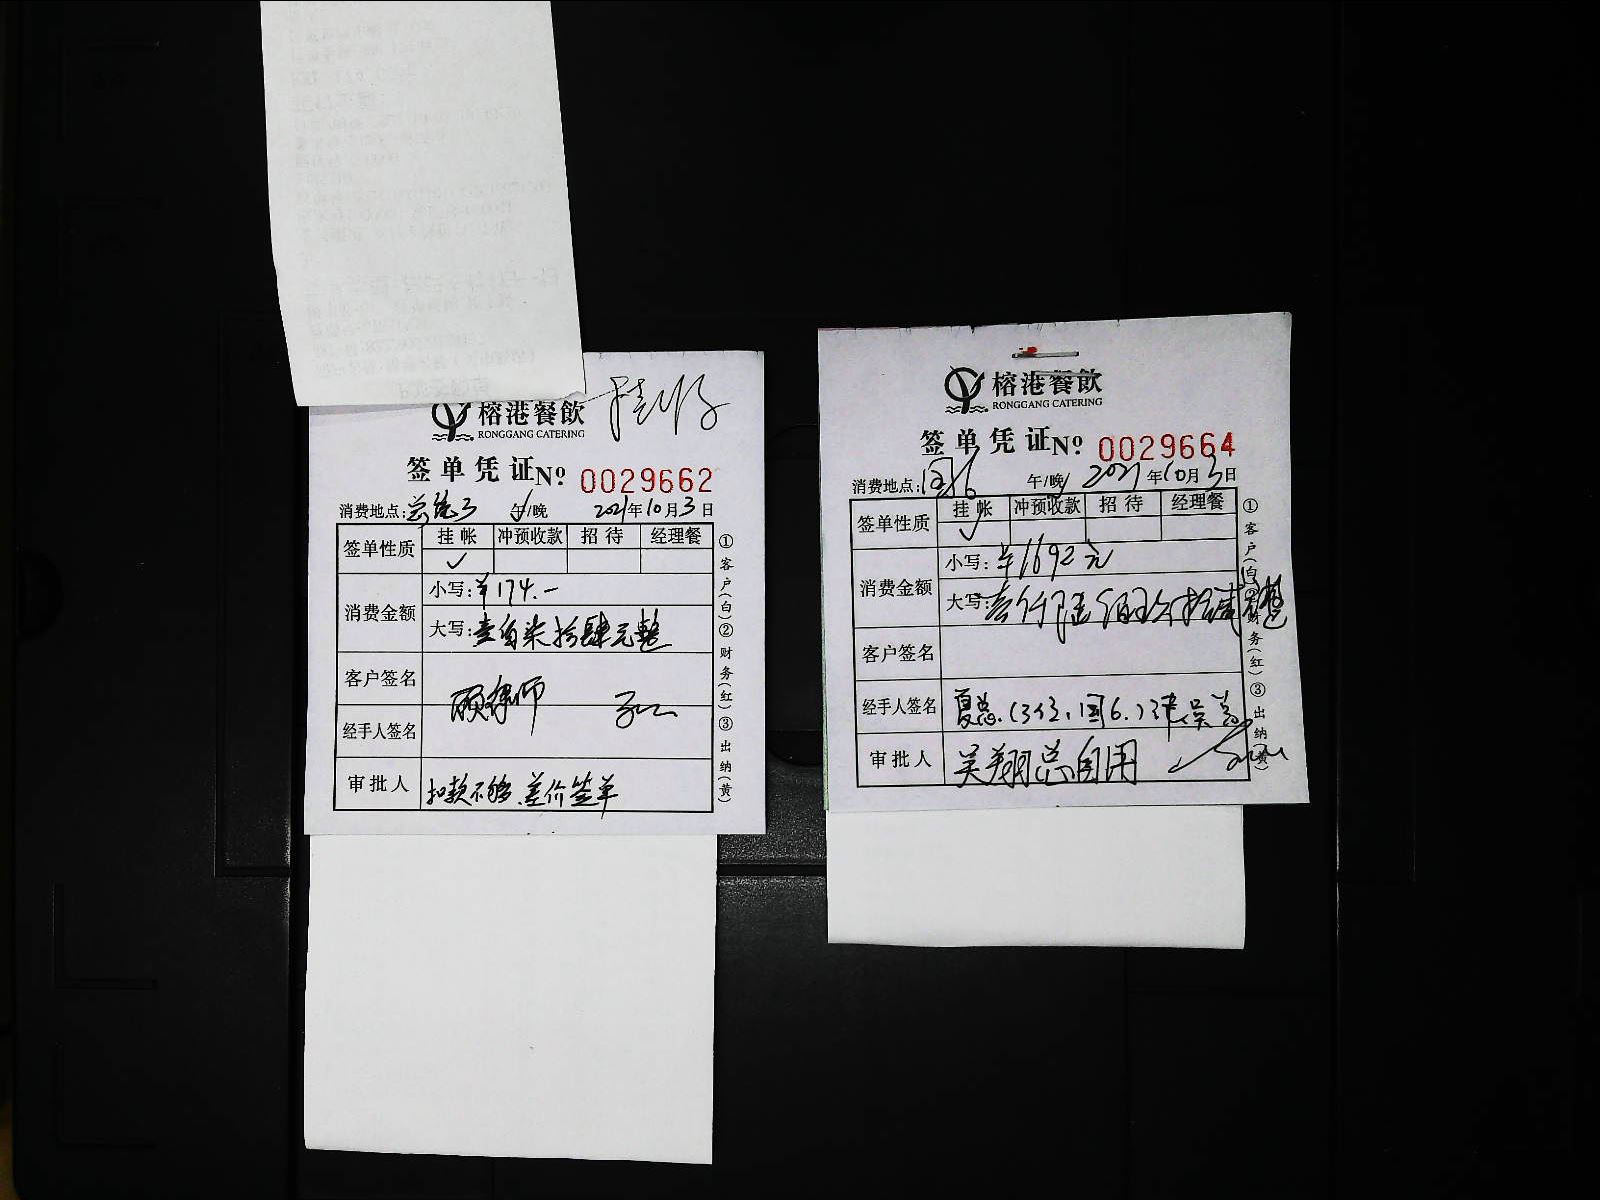 榕港餐飲
RONGGANG CATERING
签单凭证 № 0029662
消费地点: 午/晚 2021年10月3日
签单性质 挂帐 冲预收款 招待 经理餐
✓
消费金额
小写:¥174.-
大写:壹佰柒拾肆元整
客户签名
顾律师
经手人签名
审批人 扣款不够,差价签单
①客户(白)②财务(红)③出纳(黄)
榕港餐飲
RONGGANG CATERING
签单凭证 № 0029664
消费地点:国6 午/晚 2021年10月3日
签单性质 挂帐 冲预收款 招待 经理餐
✓
消费金额
小写:¥1692元
大写:壹仟陆佰玖拾贰元整
客户签名
经手人签名 夏总.(3位,国6.)
审批人 吴翔总自用
①客户(白)②财务(红)③出纳(黄)